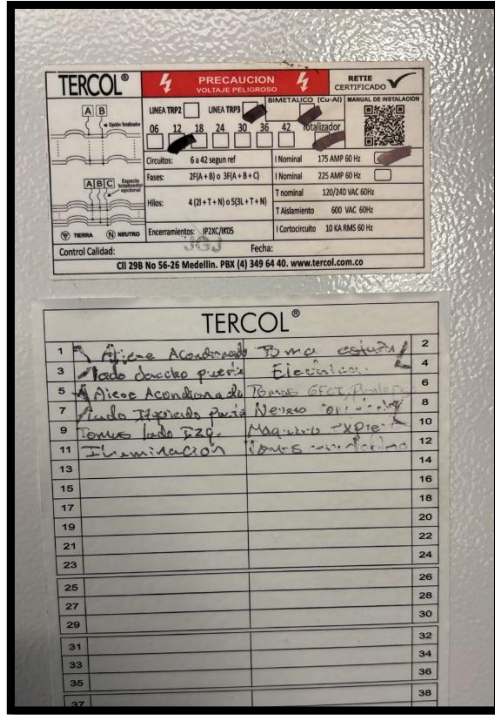 TERCOL®
PRECAUCION
VOLTAJE PELIGROSO
RETIE
CERTIFICADO
A B
Opción Totalizador
LINEA TRP2
LINEA TRP3
BIMETALICO (Cu-Al)
MANUAL DE INSTALACION
06 12 18 24 30 36 42 Totalizador
Circuitos: 6 a 42 segun ref
I Nominal 175 AMP 60 Hz
Fases: 2F(A+B) o 3F(A+B+C)
I Nominal 225 AMP 60 Hz
A B C
Espacio totalizador opcional
Hilos: 4 (2l+T+N) o 5(3L+T+N)
T nominal 120/240 VAC 60Hz
T Aislamiento 600 VAC 60Hz
TIERRA N NEUTRO
Encerramientos: IP2XC/IK05
I Cortocircuito 10 KA RMS 60 Hz
Control Calidad: Fecha:
Cll 29B No 56-26 Medellin. PBX (4) 349 64 40. www.tercol.com.co
TERCOL®
1 Aiese Acondionado Toma estufa 2
3 lado puerta Electrica 4
5 Aiese Acondionado Tomas GFCI, 6
7 lado Izquierdo Nevera 8
9 Tomas lado Izq. Maquina 10
11 Iluminacion Tomas 12
13 14
15 16
17 18
19 20
21 22
23 24
25 26
27 28
29 30
31 32
33 34
35 36
37 38